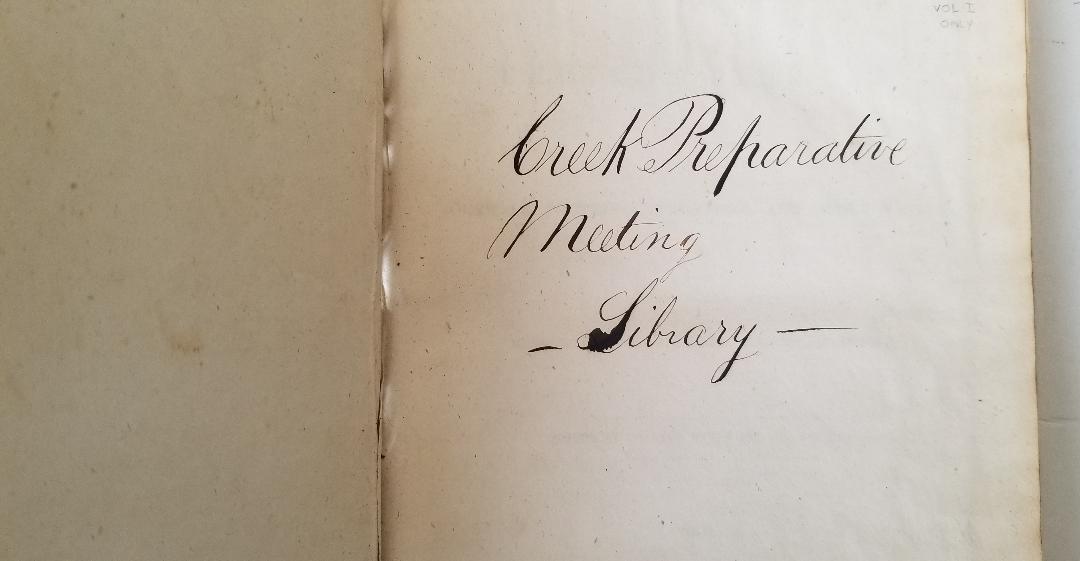 VOL I
ONLY
Creek Preparative
Meeting
– Library —